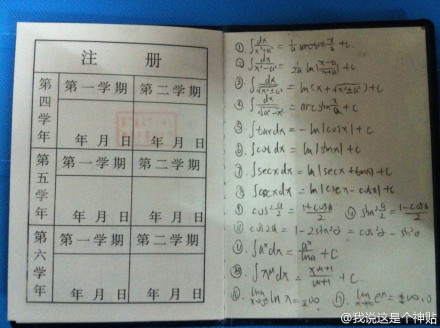 注 册
第四学年 第一学期 第二学期
年 月 日 年 月 日
第五学年 第一学期 第二学期
年 月 日 年 月 日
第六学年 第一学期 第二学期
年 月 日 年 月 日
① ∫dx/(x²+a²) = 1/a arctan x/a + C
② ∫dx/(x²-a²) = 1/2a ln|(x-a)/(x+a)| + C
③ ∫dx/√(x²±a²) = ln(x+√(x²±a²)) + C
④ ∫dx/√(a²-x²) = arcsin x/a + C
⑤ ∫tanxdx = -ln|cosx| + C
⑥ ∫cotdx = ln|sinx| + C
⑦ ∫secxdx = ln|secx+tanx| + C
⑧ ∫cscxdx = ln|cscx-cotx| + C
⑨ cos²α/2 = (1+cosα)/2 ⑩ sin²α/2 = (1-cosα)/2
cos2α = 1-2sin²α = cos²α - sin²α
∫aˣdx = aˣ/lna + C
∫xᵘdx = xᵘ⁺¹/(u+1) + C
@我说这是个神贴